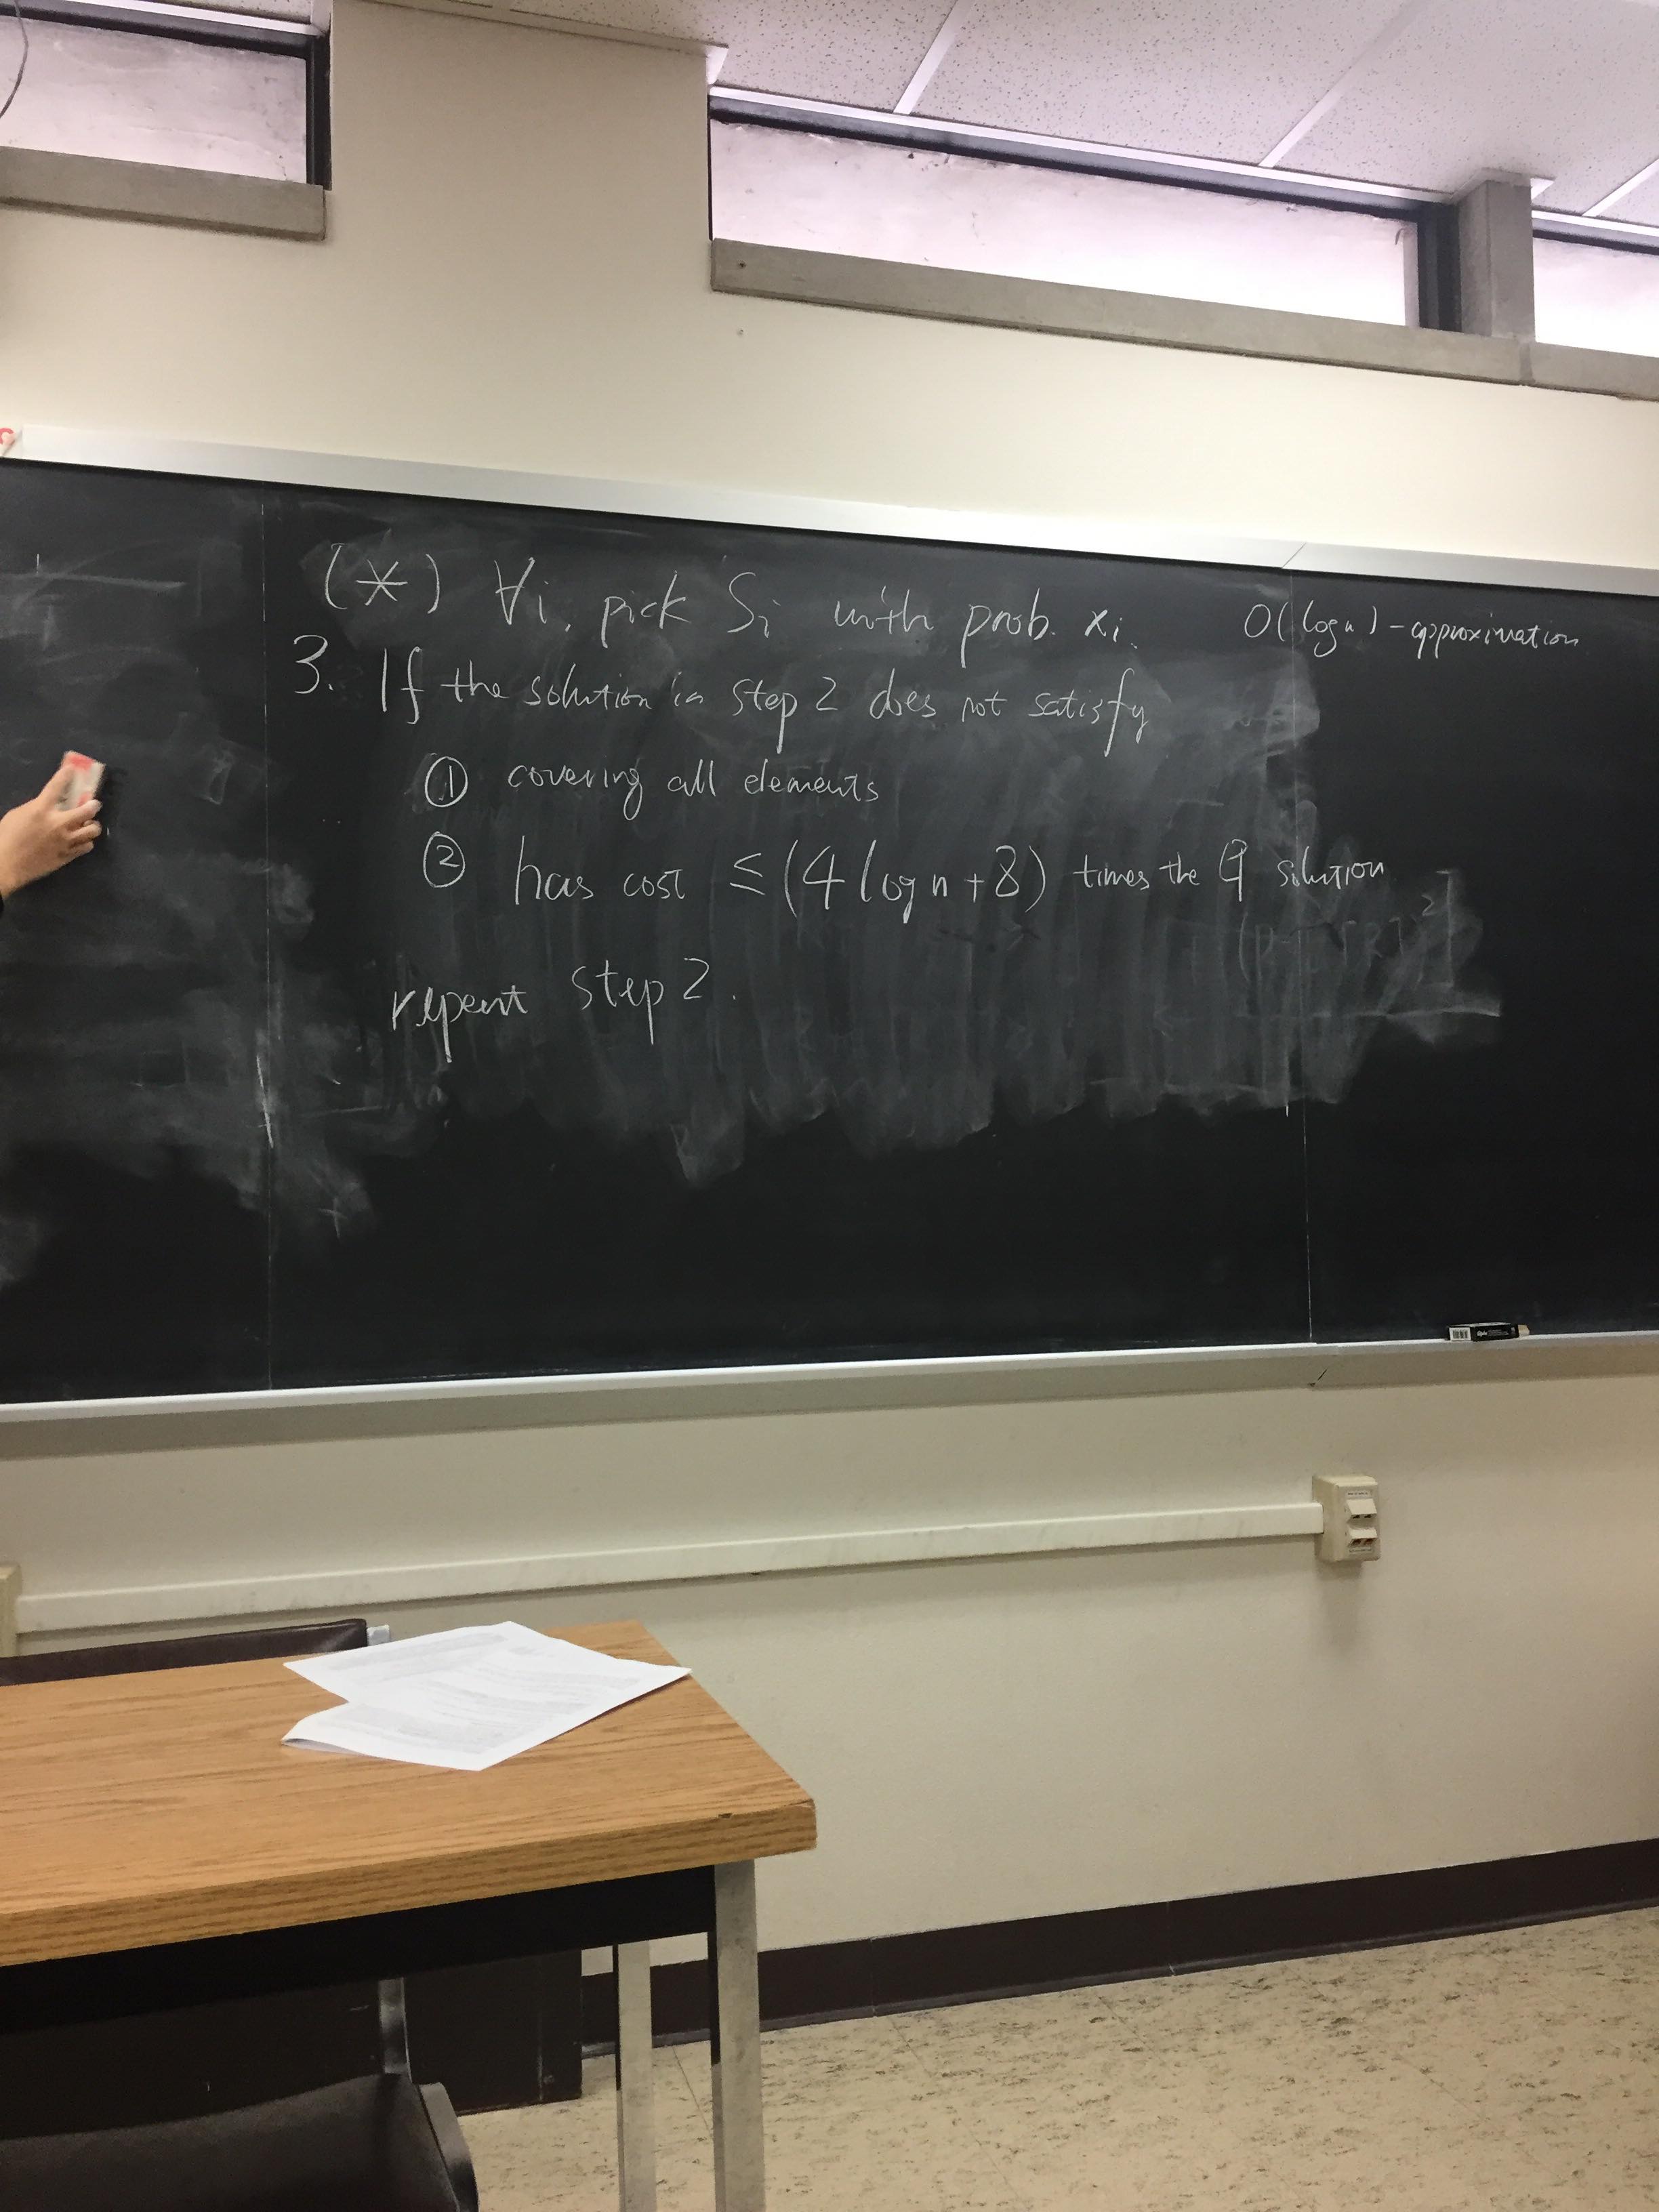 (*) ∀i, pick Si with prob. xi.
O(log n) - approximation
3. If the solution in step 2 does not satisfy
① covering all elements
② has cost ≤ (4 log n + 8) times the solution
repeat step 2.